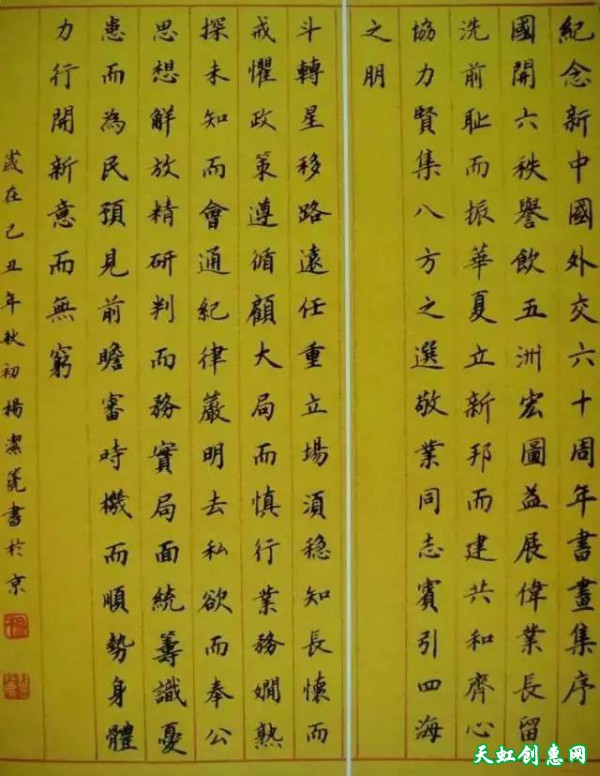 紀念新中國外交六十周年書畫集序
國開六秩譽飲五洲宏圖益展偉業長留
洗前耻而振華夏立新邦而建共和齊心
協力賢集八方之選敬業同志賓引四海
之朋
斗轉星移路遠任重立場須穩知長懷而
戒懼政策遵循顧大局而慎行業務嫻熟
探未知而會通紀律嚴明去私欲而奉公
思想解放精研判而務實局面統籌識憂
患而為民預見前瞻審時機而順勢身體
力行開新意而無窮
歲在己丑年秋初楊潔篪書於京
天虹创惠网